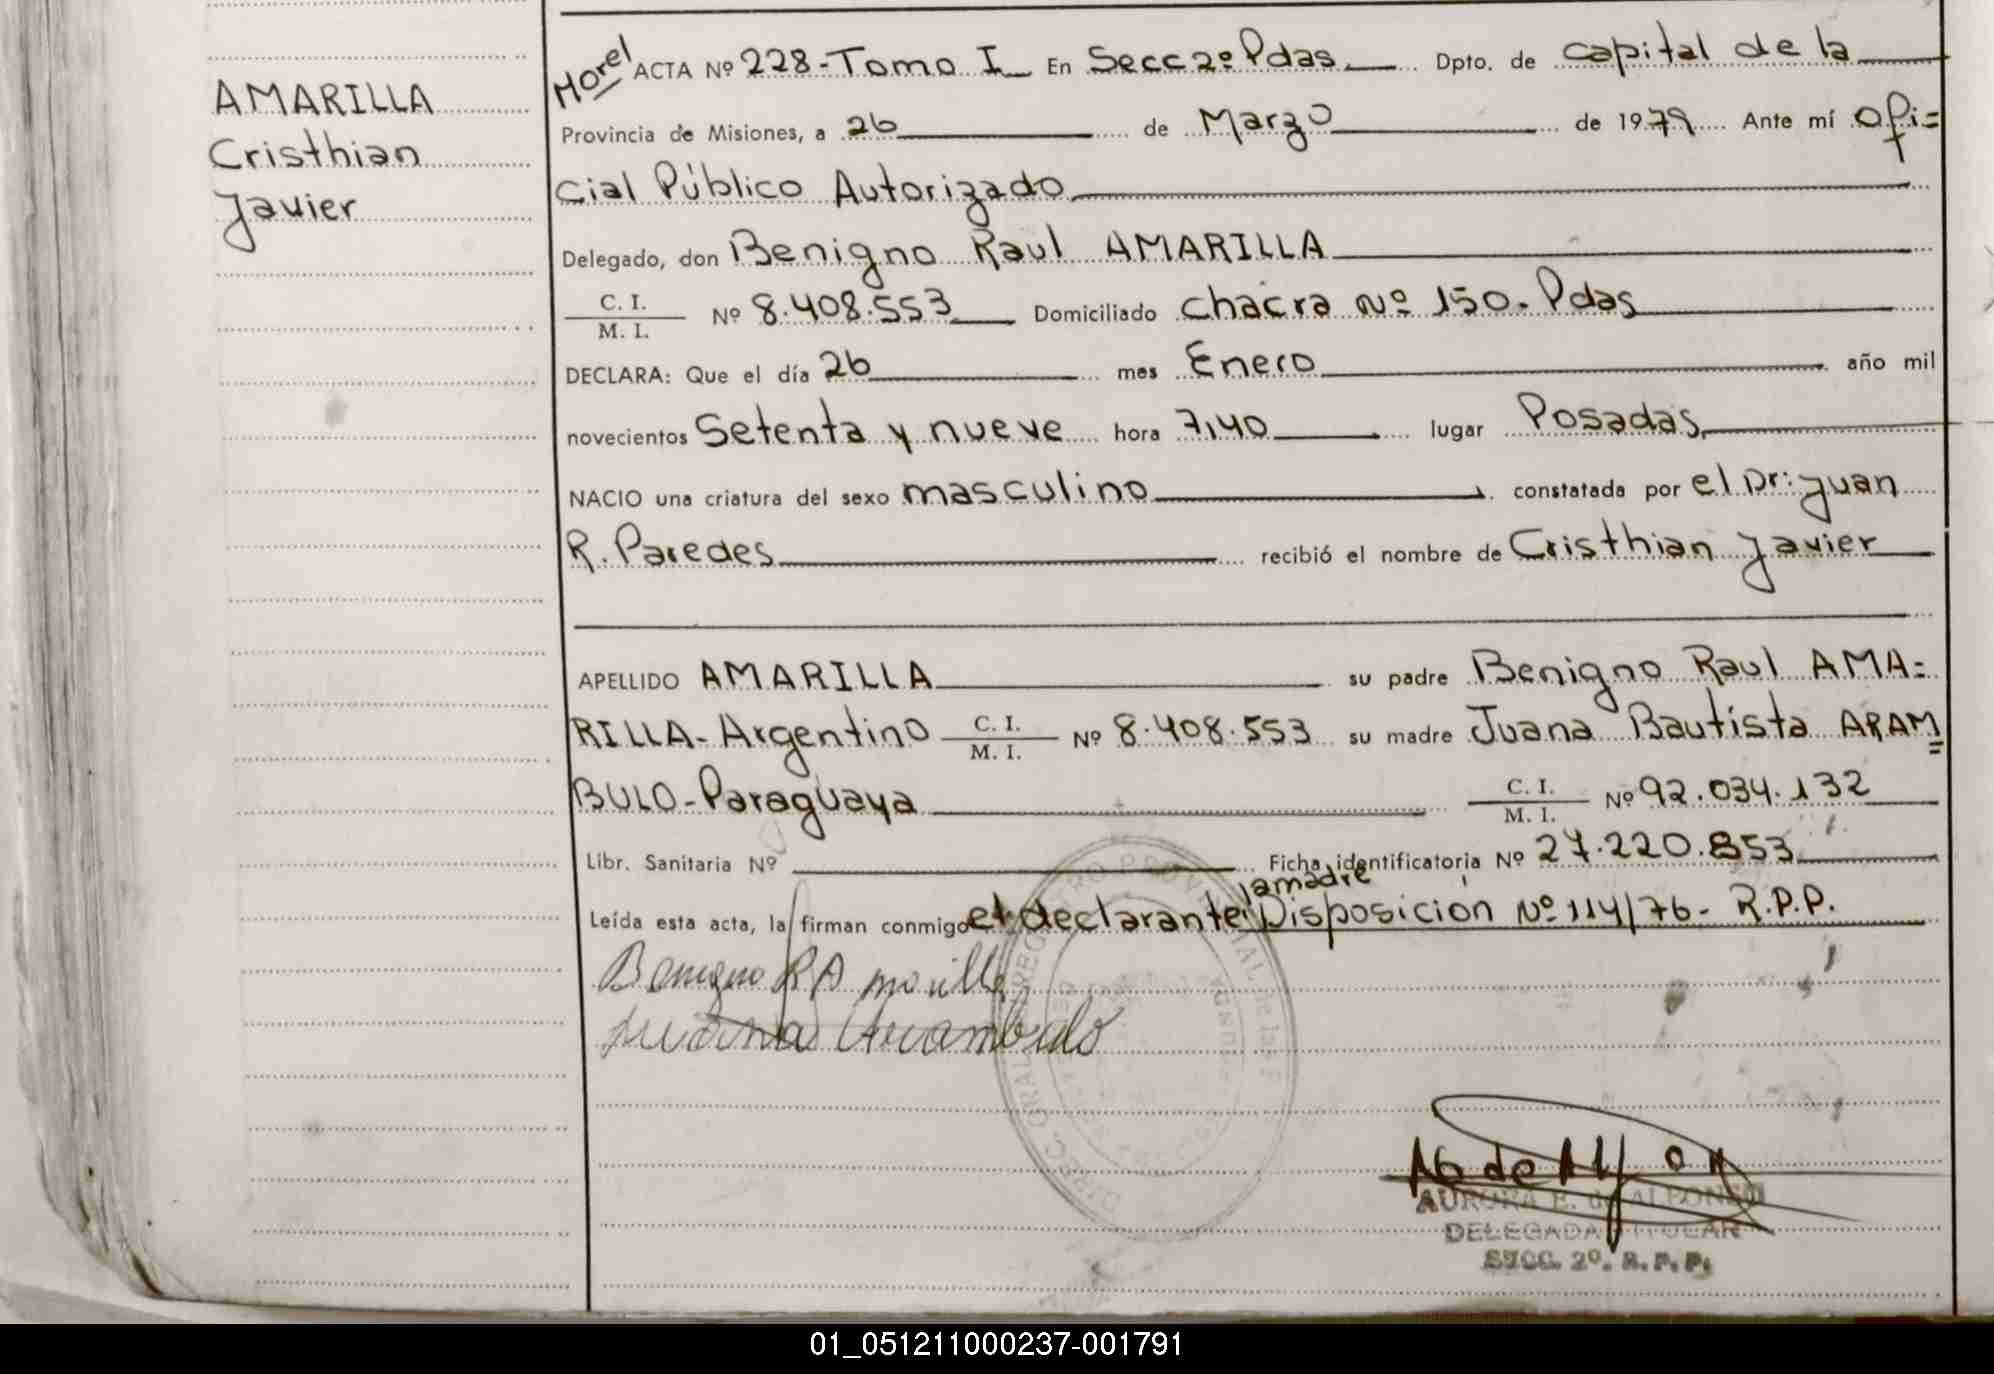 AMARILLA
Cristhian
Javier
Morel ACTA Nº 228-Tomo I En Secc 2º Pdas. Dpto. de capital de la
Provincia de Misiones, a 26 de Marzo de 1979 Ante mí Ofi=
cial Público Autorizado
Delegado, don Benigno Raul AMARILLA
C. I.
M. I. Nº 8.408.553 Domiciliado chacra Nº 150. Pdas
DECLARA: Que el día 26 mes Enero año mil
novecientos Setenta y nueve hora 7,40 lugar Posadas
NACIO una criatura del sexo masculino constatada por el Dr: Juan
R. Paredes recibió el nombre de Cristhian Javier
APELLIDO AMARILLA su padre Benigno Raul AMA=
RILLA-Argentino C. I. M. I. Nº 8.408.553 su madre Juana Bautista ARAM=
BULO-Paraguaya C. I. M. I. Nº 92.034.132
Libr. Sanitaria Nº Ficha identificatoria Nº 27.220.853
la madre
Leída esta acta, la firman conmigo el declarante, Disposición Nº 114/76- R.P.P.
Benigno R Amarilla
Juana Arambulo
AURORA E. de ALFONSO
DELEGADA TITULAR
SECC. 2º. R. P. P.
01_051211000237-001791